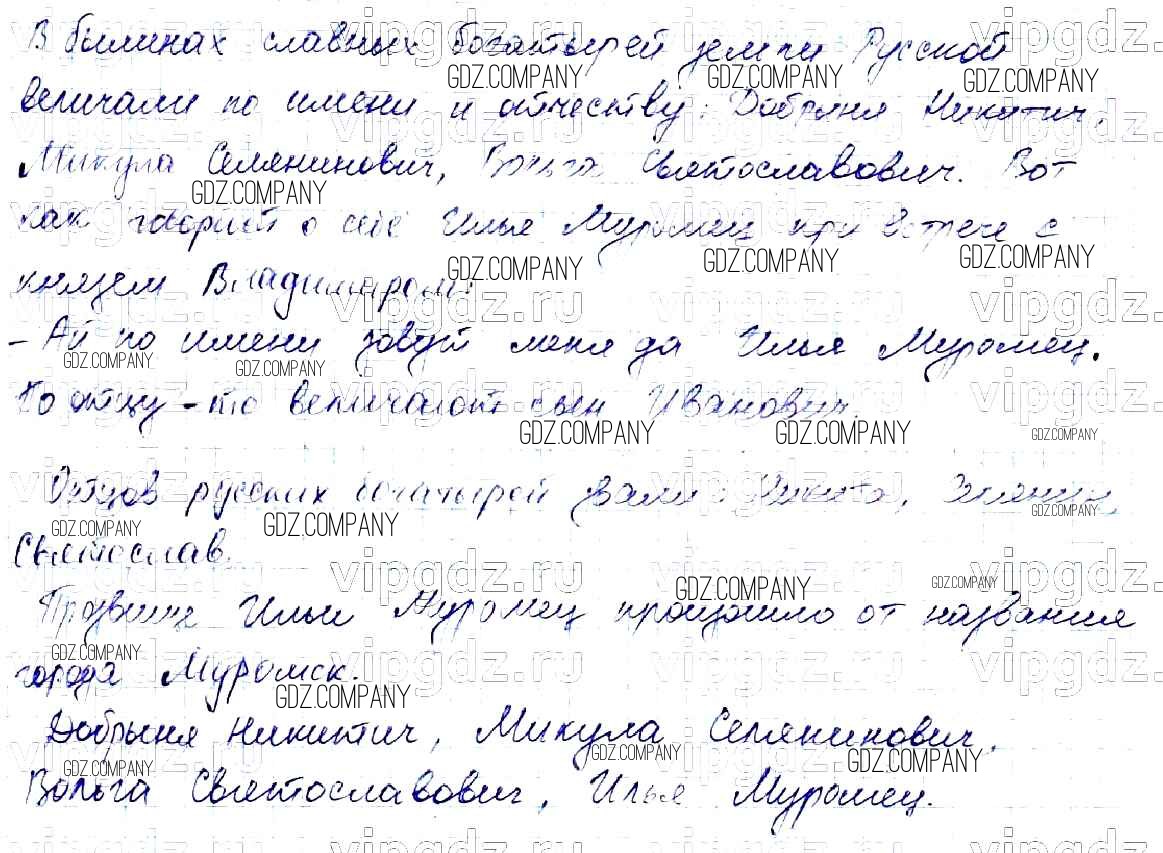 В былинах славных богатырей земли Русской
величали по имени и отчеству: Добрыня Никитич,
Микула Селянинович, Вольга Святославович. Вот
как говорит о себе Илья Муромец при встрече с
князем Владимиром:
- Ай по имени зовут меня да Илья Муромец.
По отцу-то величают сын Иванович.
Отцов русских богатырей звали: Никита, Селянин,
Святослав.
Прозвище Ильи Муромец произошло от названия
города Муромск.
Добрыня Никитич, Микула Селянинович,
Вольга Святославович, Илья Муромец.
vipgdz.ru
GDZ.COMPANY